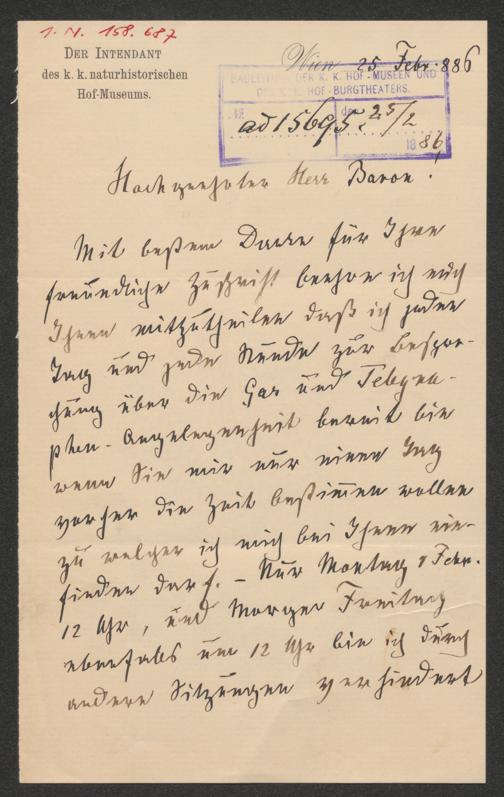 I. N. 158.687
DER INTENDANT
des k. k. naturhistorischen
Hof-Museums.
Wien 25 Febr. 886
BAULEITUNG DER K. K. HOF-MUSEEN UND
DES K. K. HOF-BURGTHEATERS.
ad 15695 de 25/2
1886
Hochgeehrter Herr Baron!
Mit bestem Danke für Ihre
freundliche Zuschrift beehre ich mich
Ihnen mitzutheilen daß ich jeden
Tag und jede Stunde zur Bespre-
chung über die Gas und Telegra-
phen-Angelegenheit bereit bin
wenn Sie mir nur einen Tag
vorher die Zeit bestimmen wollen
zu welcher ich mich bei Ihnen ein-
finden darf. – Nur Montag 1 Febr.
12 Uhr, und Morgen Freitag
ebenfalls um 12 Uhr bin ich durch
andere Sitzungen verhindert